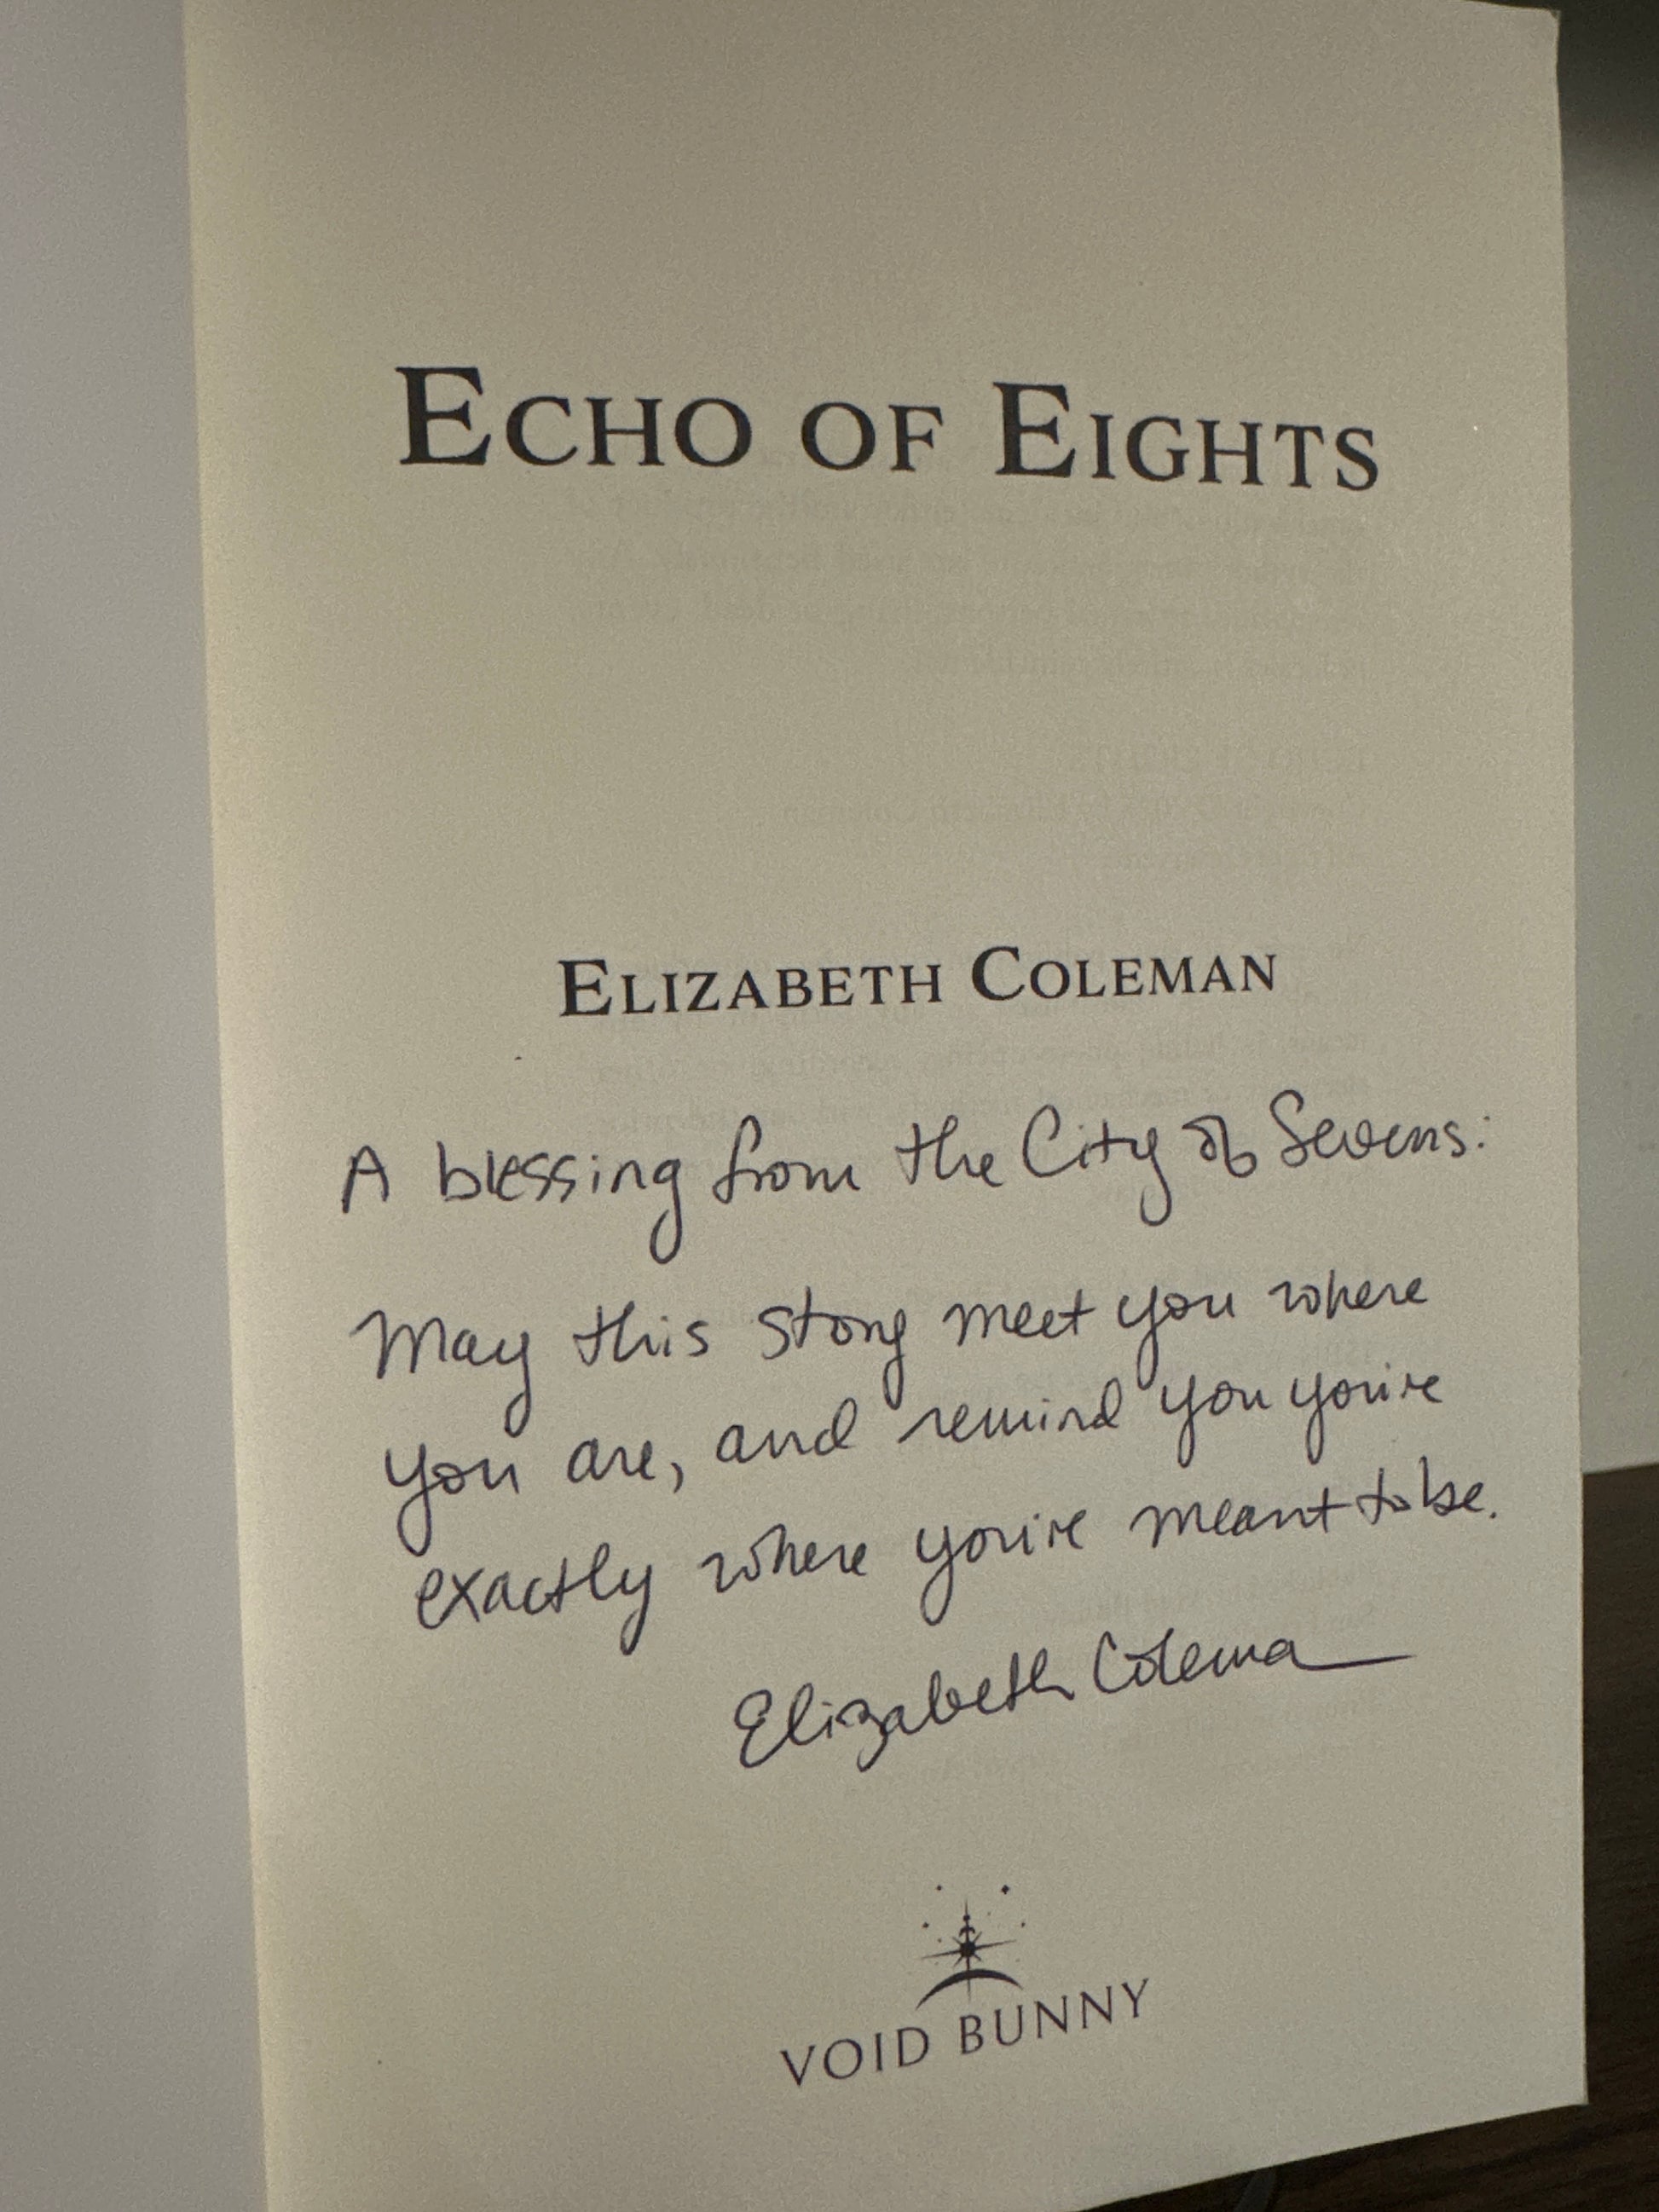 ECHO OF EIGHTS
ELIZABETH COLEMAN
A blessing from the City of Sevens:
May this story meet you where
you are, and remind you you're
exactly where you're meant to be.
Elizabeth Coleman
VOID BUNNY